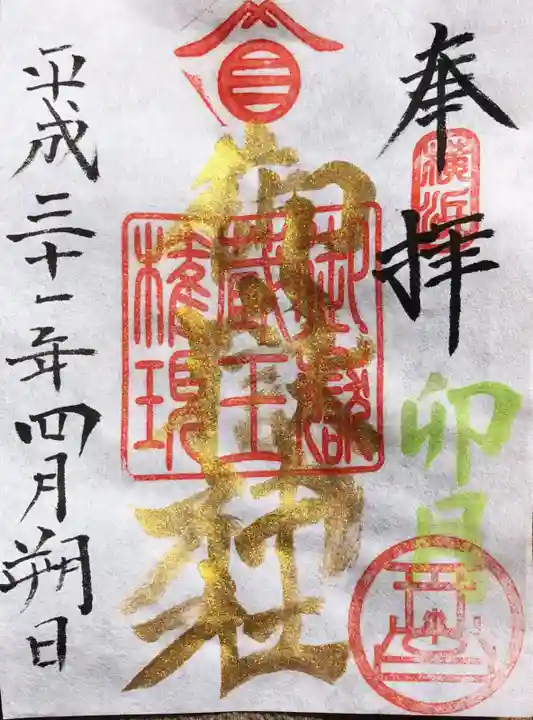 奉拝
横浜
卯日
御嶽社
御嶽
蔵王
権現
平成三十一年四月朔日